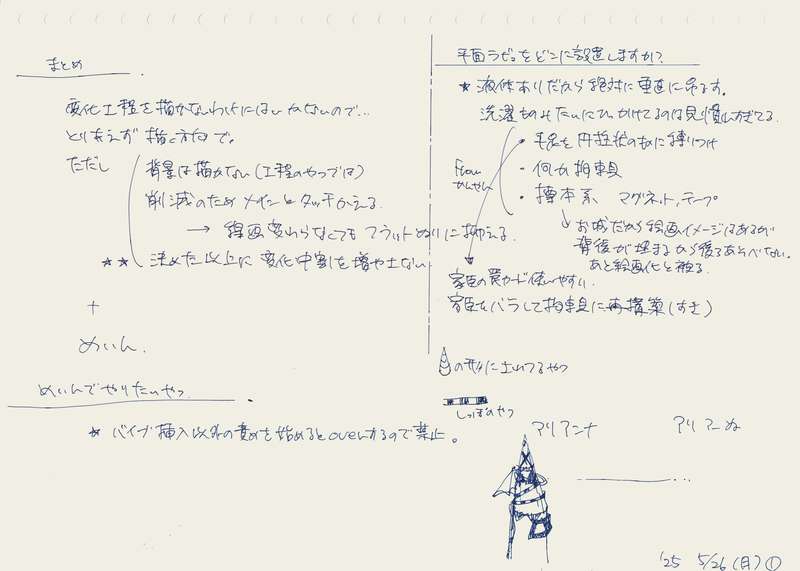 まとめ
変化工程を描かないわけにはいかないので…
とりあえず描く方向で。
ただし
背景は描かない(工程のやつでは)
削減のためメインとタッチかえる
→ 線画変わらなくてもフラットぬりに抑える
★★ 決めた以上に変化中割を増やさない
+
めいん.
めいんでやりたいやつ
★ バイブ挿入以外の責めを始めるとoverするので禁止。
平面ラビュをどこに設置しますか?
★ 液体ありだから絶対に垂直に吊るす。
洗濯ものみたいにひっかけてるのは見り慣しすぎてる
・手足を円柱状のものに縛りつけ
・何か拘束具
・標本系 マグネット, テープ
↓ お城だから絵画イメージはあるが
背後が埋まるから後ろあそべない。
あと絵画化と被る
家臣の罠カード使いやすい
家臣をバラして拘束具に再構築(すき)
の形に
しっぽのやつ
アリアンナ
アリアーぬ
'25 5/26(月)①